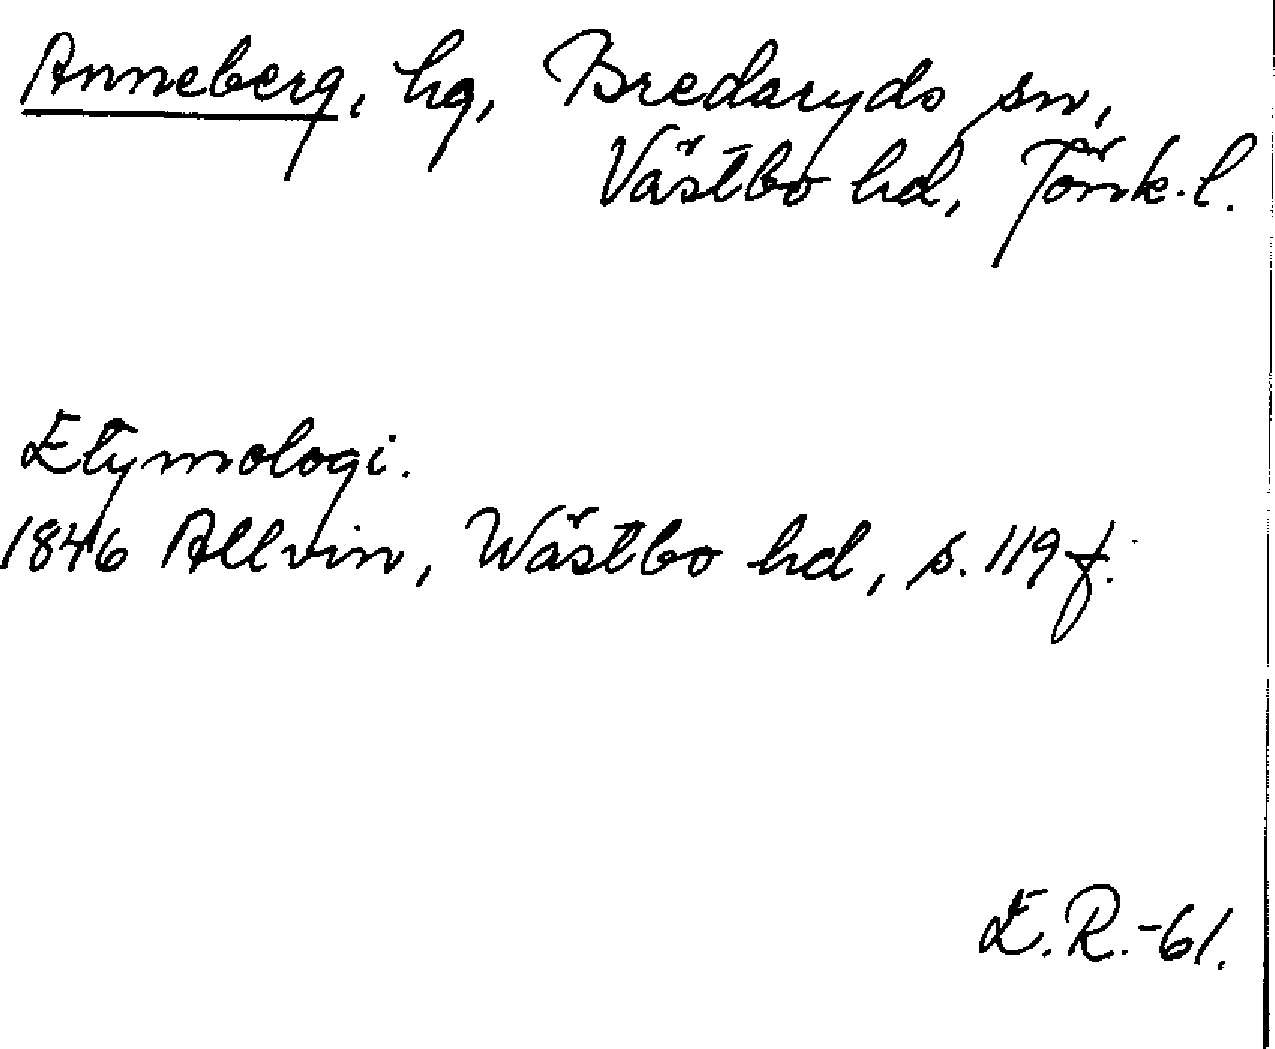 Anneberg, hg, Bredaryds sn,
Västbo hd, Jönk.l.
Etymologi.
1846 Allvin, Wästbo hd, s. 119 f.
E.R.-61.